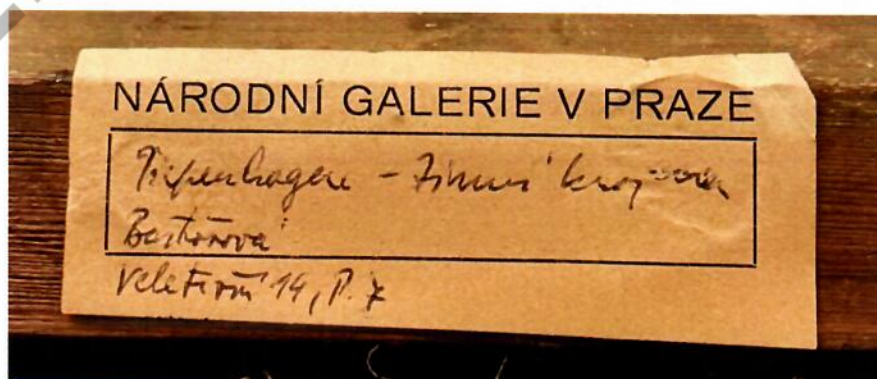 NÁRODNÍ GALERIE V PRAZE
Piepenhagen – Zimní krajina
Veletržní 14, P. 7